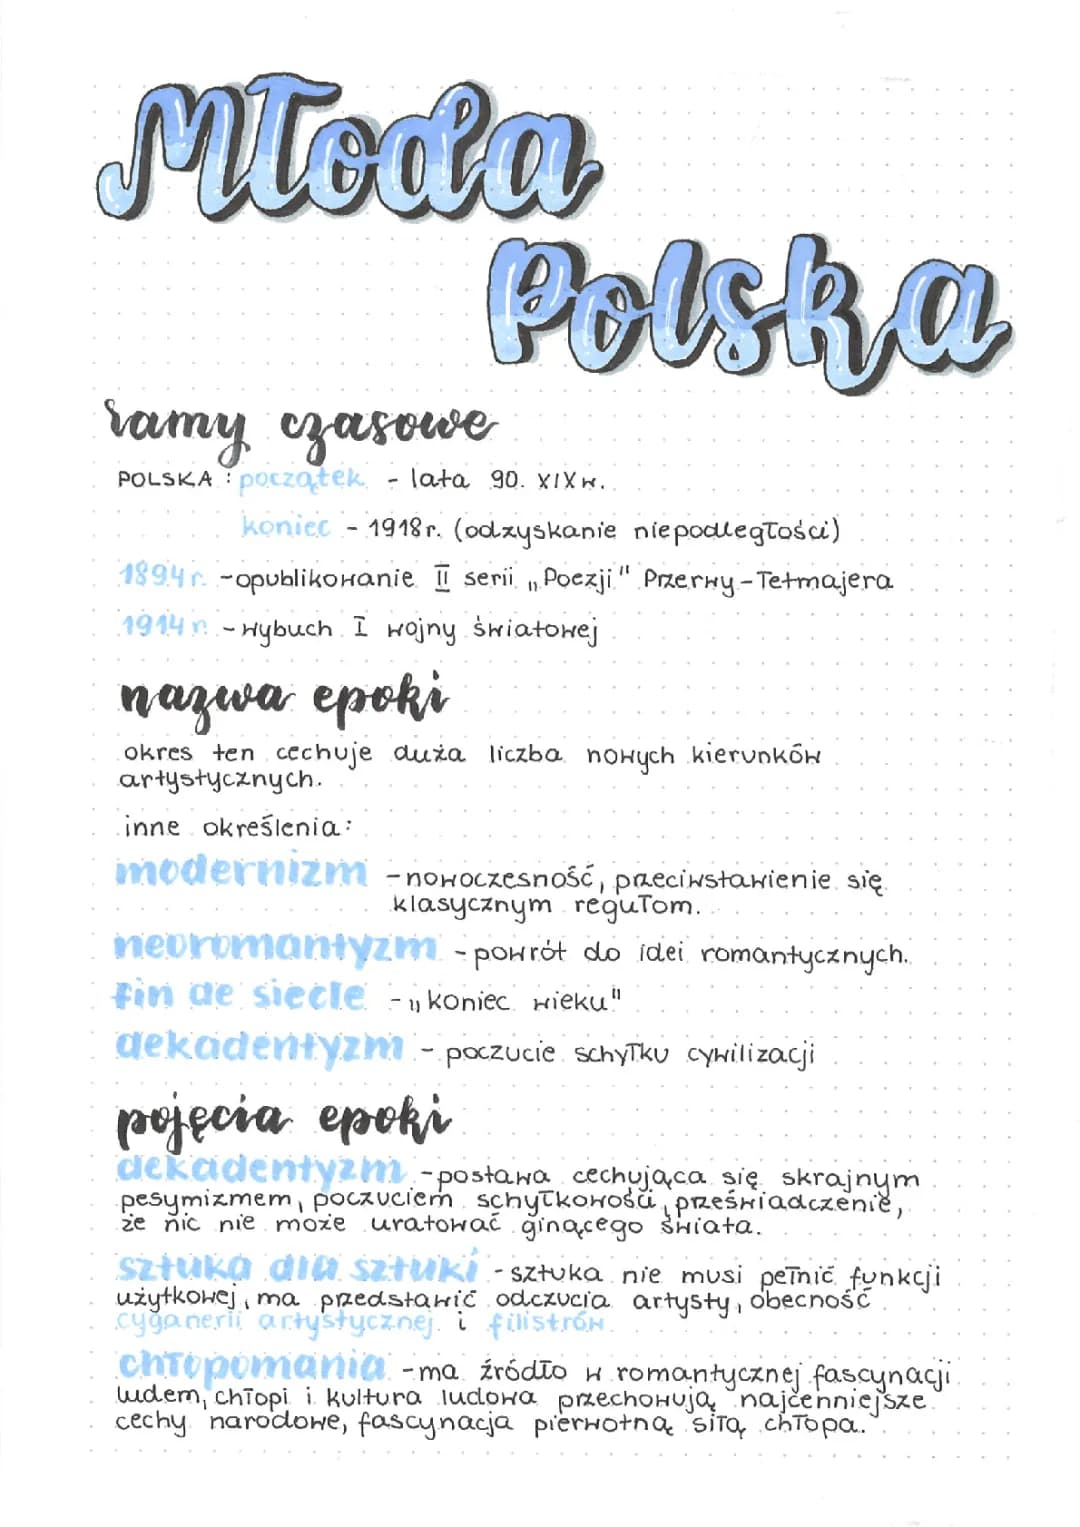 Młoda
Polska
ramy czasowe
POLSKA : początek - lata 90. XIX w.
koniec - 1918r. (odzyskanie niepodległości)
1894r. - opublikowanie II serii „Poezji" Przerwy-Tetmajera
1914r. - wybuch I wojny światowej
nazwa epoki
okres ten cechuje duża liczba nowych kierunków
artystycznych.
inne określenia:
modernizm - nowoczesność, przeciwstawienie się
klasycznym regułom.
neoromantyzm - powrót do idei romantycznych.
fin de siecle - „koniec wieku"
dekadentyzm - poczucie schyłku cywilizacji
pojęcia epoki
dekadentyzm - postawa cechująca się skrajnym
pesymizmem, poczuciem schyłkowości, przeświadczenie,
że nic nie może uratować ginącego świata.
sztuka dla sztuki - sztuka nie musi pełnić funkcji
użytkowej, ma przedstawić odczucia artysty, obecność
cyganerii artystycznej i filistrów
chłopomania - ma źródło w romantycznej fascynacji
ludem, chłopi i kultura ludowa przechowują najcenniejsze
cechy narodowe, fascynacja pierwotną siłą chłopa.